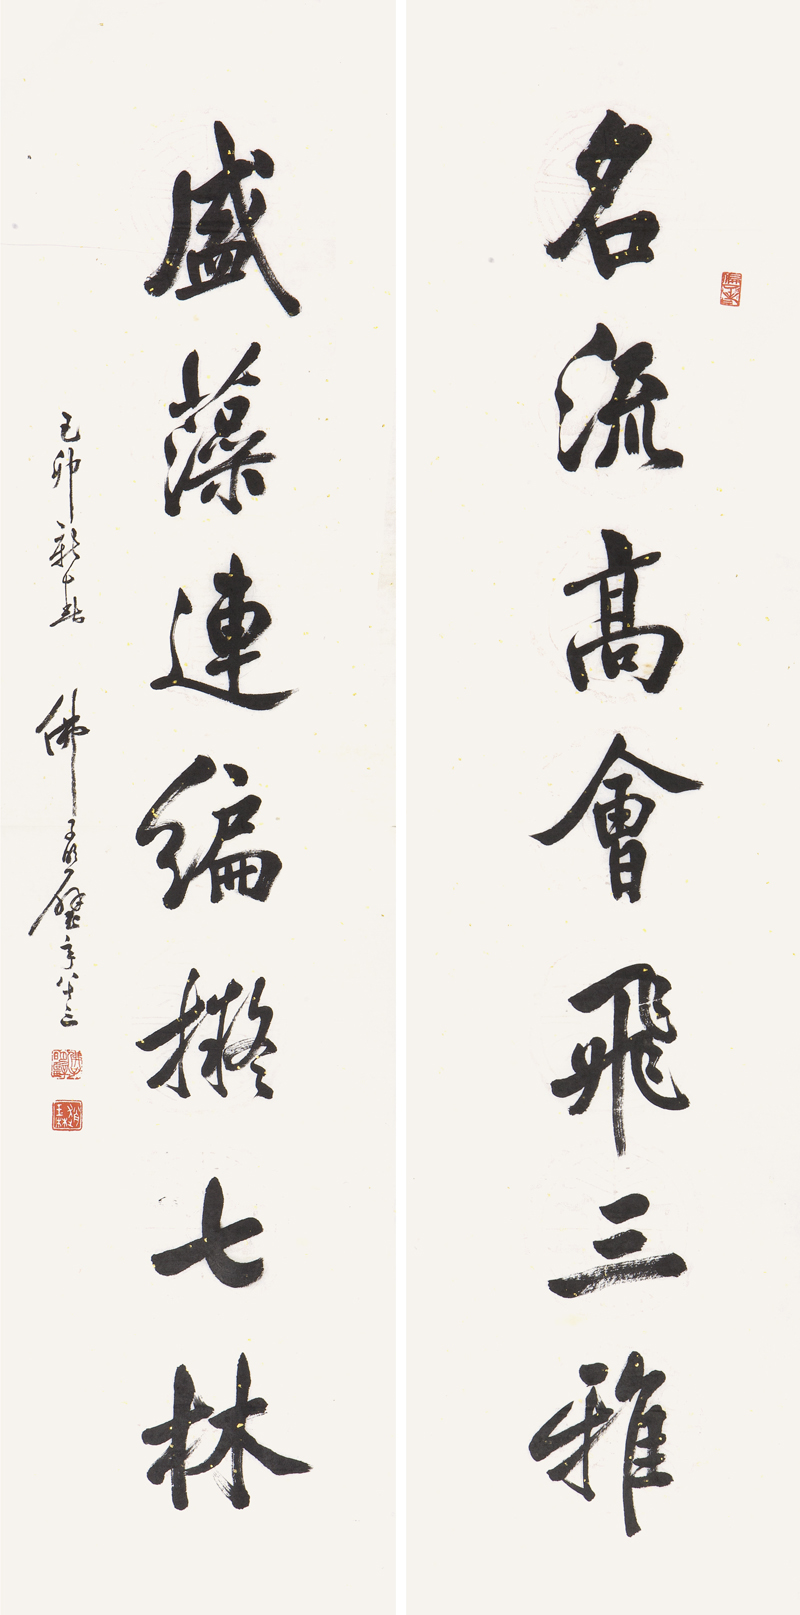 名流高會飛三雅
盛藻連編擬七林
己卯新春 佛
年八十三